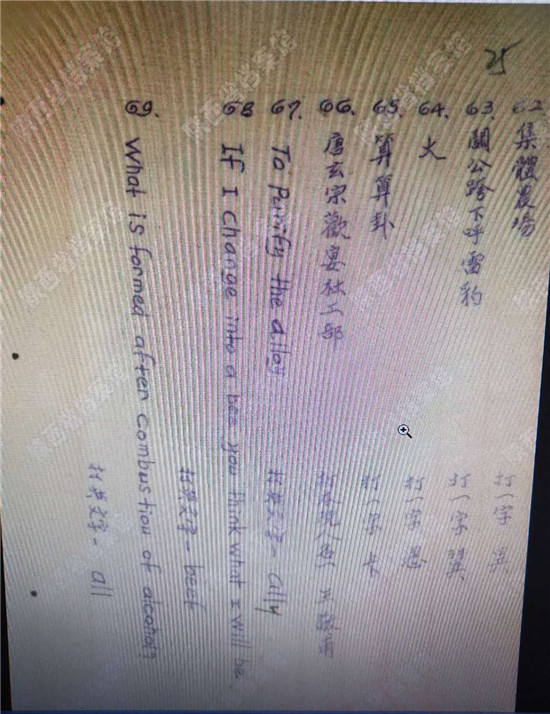 25
62. 集體農場 打一字
63. 關公跨下呼雷豹 打一字
64. 火 打一字
65. 算算卦 打一字
66. 唐玄宗歡宴杜工部
67. To Purify the alloy 打英文字一 ally
68 If I change into a bee, you think what I will be.
打英文字一 beef
69. What is formed after combustion of alcohol
打英文字一 all
陕西省档案馆